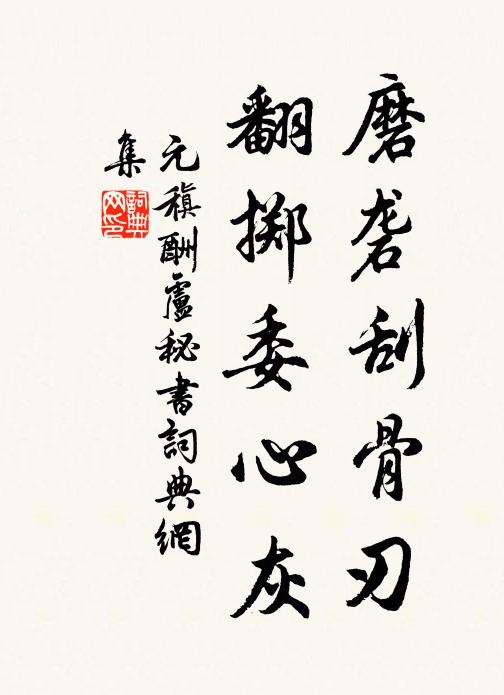 磨砻刮骨刃
翻掷委心灰
元稹酬盧秘書詞典網
集
詞典網印